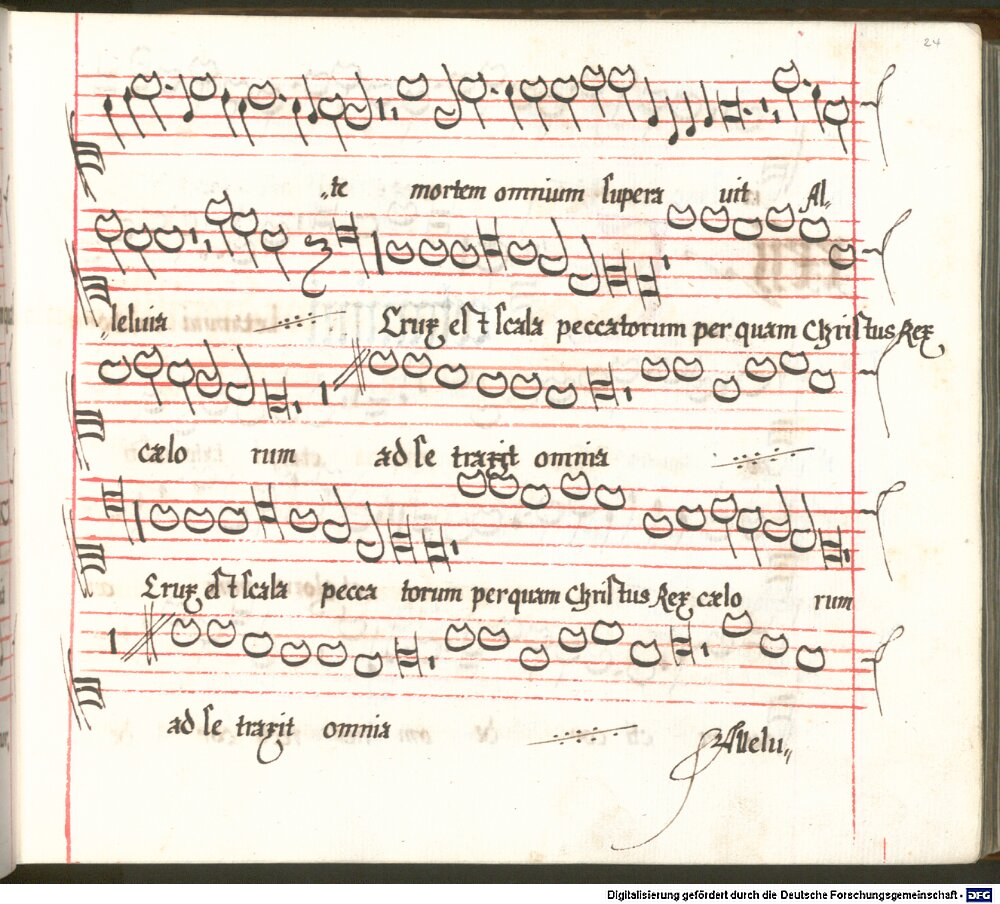 24
„te mortem omnium supera uit Al„
„leluia Crux est scala peccatorum per quam Christus Rex
cælo rum ad se traxit omnia
Crux est scala pecca torum per quam Christus Rex cælo rum
ad se traxit omnia Allelu„
Digitalisierung gefördert durch die Deutsche Forschungsgemeinschaft - DFG